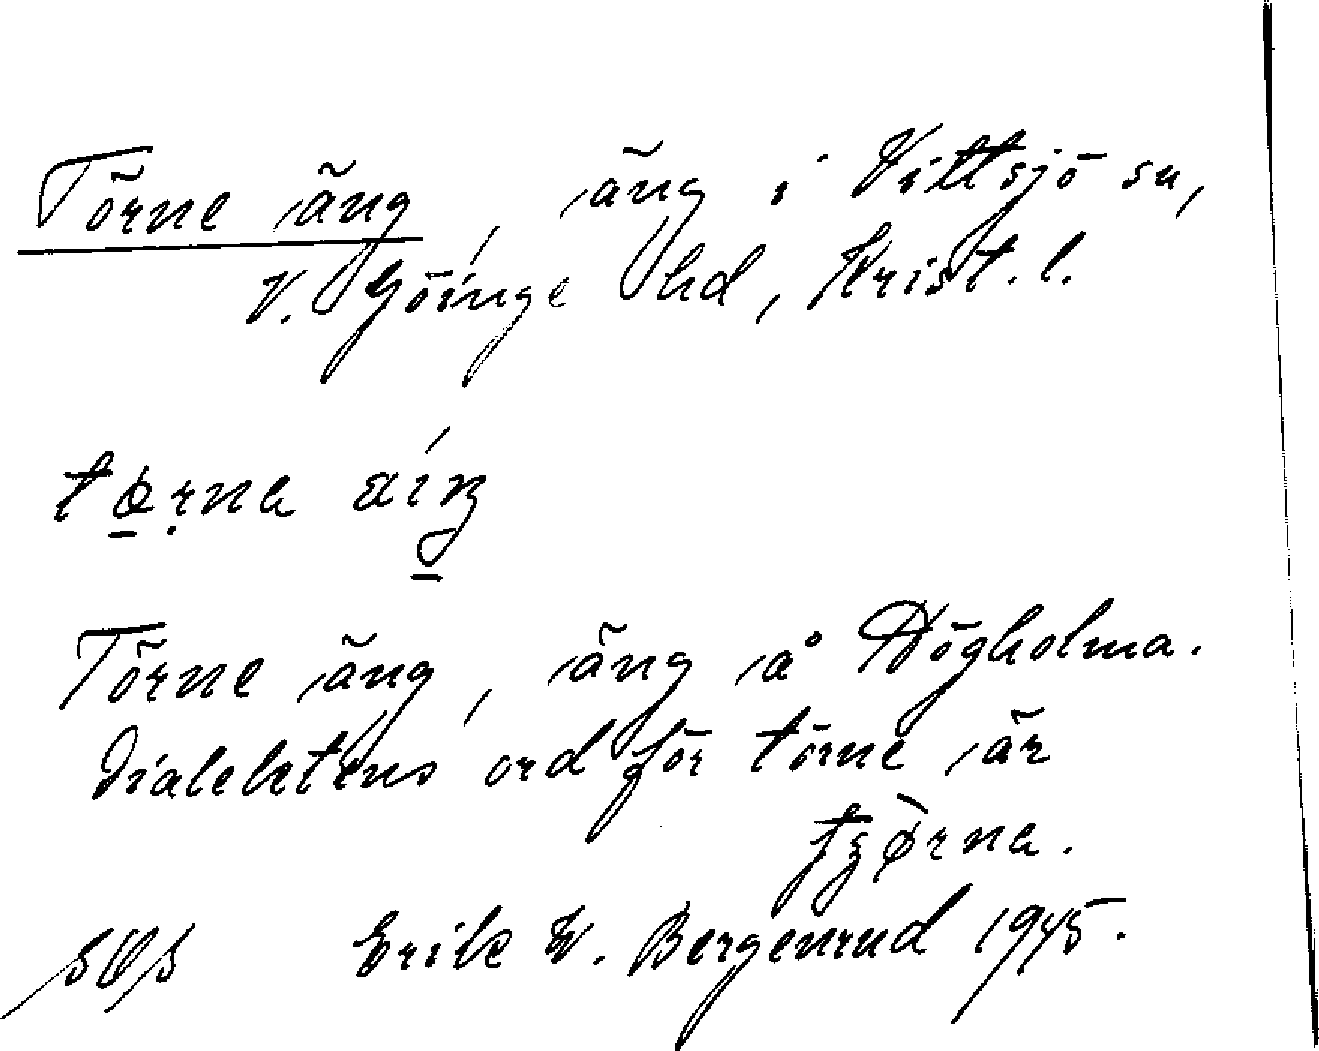 Törne äng, äng i Vittsjö sn,
V. Göinge hd, Krist. l.
Törne äng, äng å Högholma.
Dialektens ord för törne är
Erik W. Bergenrud 1945.